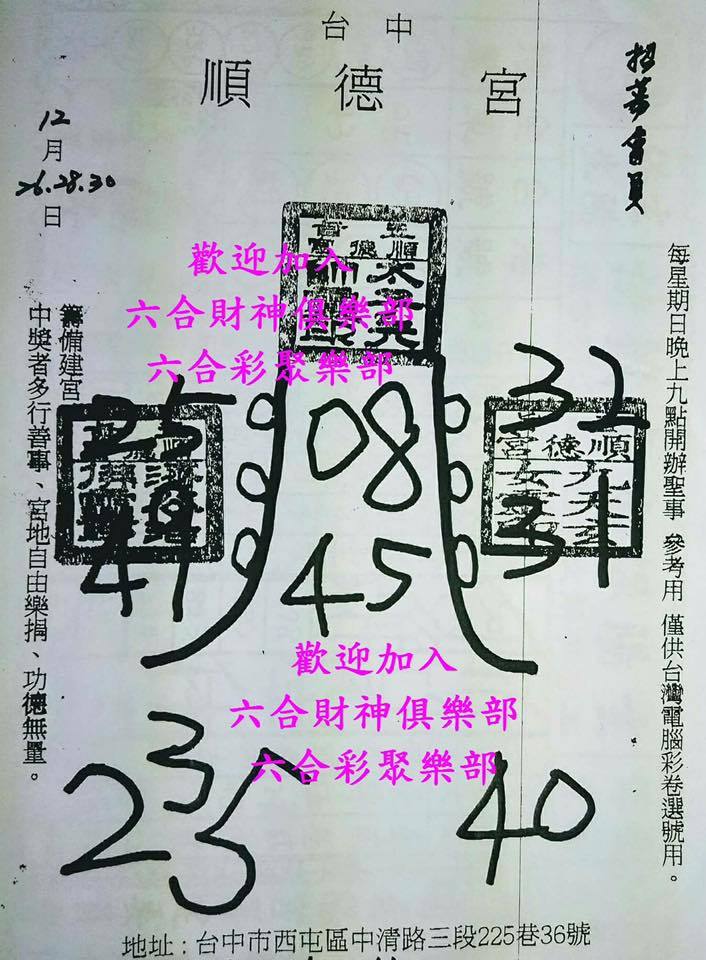 台中
順德宮
招募會員
12
月
26.28.30
日
每星期日晚上九點開辦聖事 參考用 僅供台灣電腦彩卷選號用。
歡迎加入
六合財神俱樂部
六合彩聚樂部
籌備建宮
中獎者多行善事、宮地自由樂捐、功德無量。
順德宮
25
49
08
45
32
31
歡迎加入
六合財神俱樂部
六合彩聚樂部
2
3
5
40
地址:台中市西屯區中清路三段225巷36號